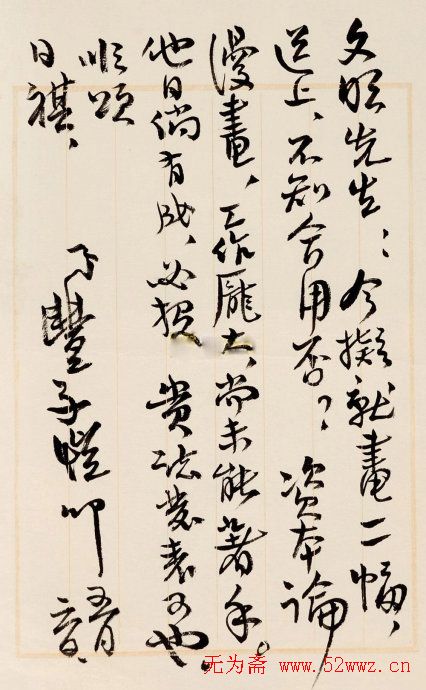 文明先生：今擬就畫二幅、
送上、不知合用否？資本論
漫畫、工作龐大、尚未能著手。
他日倘有成、必投貴誌發表可也。
順頌
日祺、
弟豐子愷叩
五月
无为斋 www.52wwz.cn